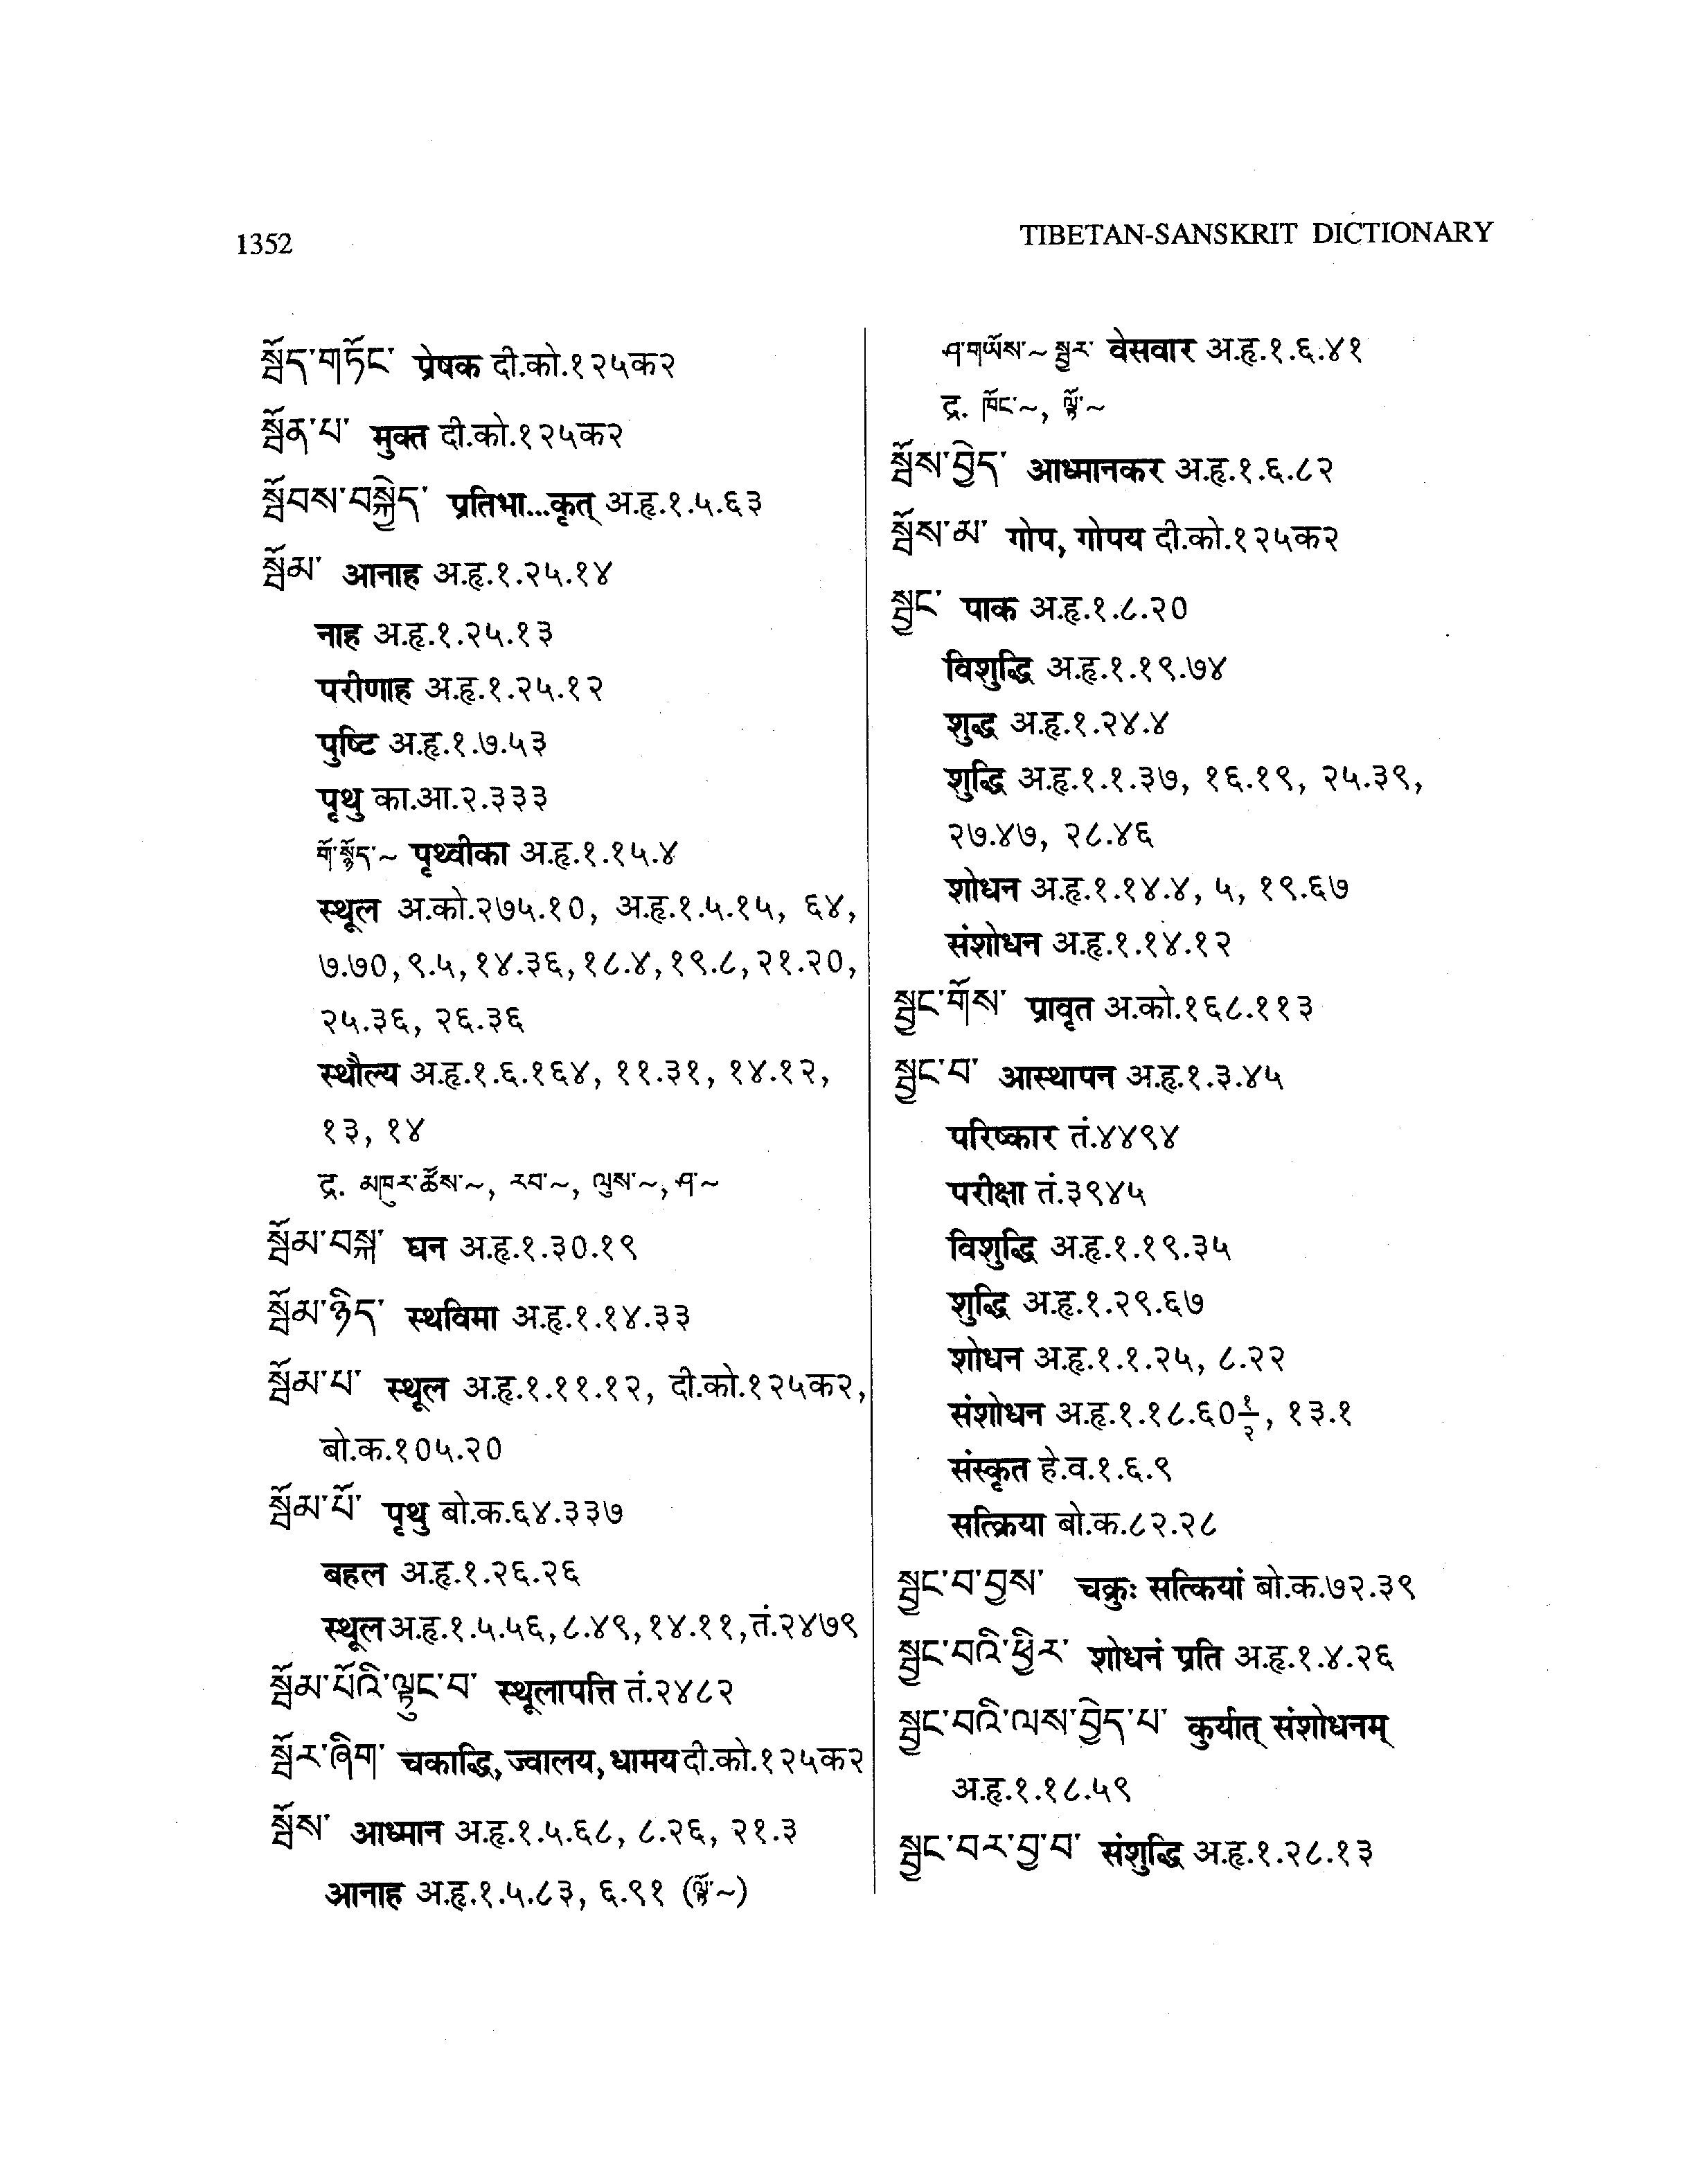 1352
TIBETAN-SANSKRIT DICTIONARY
སྦོད་གཏོང་ प्रेषक दी.को.१२५क२
སྦོན་པ་ मुक्त दी.को.१२५क२
སྦོབས་བསྐྱེད་ प्रतिभा...कृत् अ.हृ.१.५.६३
སྦོམ་ आनाह अ.हृ.१.२५.१४
नाह अ.हृ.१.२५.१३
परीणाह अ.हृ.१.२५.१२
पुष्टि अ.हृ.१.७.५३
पृथु का.आ.२.३३३
གོ་སྙོད་~ पृथ्वीका अ.हृ.१.१५.४
स्थूल अ.को.२७५.१०, अ.हृ.१.५.१५, ६४,
७.७०, ९.५, १४.३६, १८.४, १९.८, २१.२०,
२५.३६, २६.३६
स्थौल्य अ.हृ.१.६.१६४, ११.३१, १४.१२,
१३, १४
द्र. མཁུར་ཚོས་~, རབ་~, ལུས་~, ཤ་~
སྦོམ་བསྐ་ घन अ.हृ.१.३०.१९
སྦོམ་ཉིད་ स्थविमा अ.हृ.१.१४.३३
སྦོམ་པ་ स्थूल अ.हृ.१.११.१२, दी.को.१२५क२,
बो.क.१०५.२०
སྦོམ་པོ་ पृथु बो.क.६४.३३७
बहल अ.हृ.१.२६.२६
स्थूल अ.हृ.१.५.५६, ८.४९, १४.११, तं.२४७९
སྦོམ་པོའི་ལྟུང་བ་ स्थूलापत्ति तं.२४८२
སྦོར་ཞིག་ चकाद्धि, ज्वालय, धामय दी.को.१२५क२
སྦོས་ आध्मान अ.हृ.१.५.६८, ८.२६, २१.३
आनाह अ.हृ.१.५.८३, ६.९१ (ལྟོ་~)
ཤ་གཡོས་~ སྦྱར་ वेसवार अ.हृ.१.६.४१
द्र. ཁོང་~, ལྟོ་~
སྦོས་བྱེད་ आध्मानकर अ.हृ.१.६.८२
སྦོས་མ་ गोप, गोपय दी.को.१२५क२
སྦྱང་ पाक अ.हृ.१.८.२०
विशुद्धि अ.हृ.१.१९.७४
शुद्ध अ.हृ.१.२४.४
शुद्धि अ.हृ.१.१.३७, १६.१९, २५.३९,
२७.४७, २८.४६
शोधन अ.हृ.१.१४.४, ५, १९.६७
संशोधन अ.हृ.१.१४.१२
སྦྱང་གོས་ प्रावृत अ.को.१६८.११३
སྦྱང་བ་ आस्थापन अ.हृ.१.३.४५
परिष्कार तं.४४९४
परीक्षा तं.३९४५
विशुद्धि अ.हृ.१.१९.३५
शुद्धि अ.हृ.१.२९.६७
शोधन अ.हृ.१.१.२५, ८.२२
संशोधन अ.हृ.१.१८.६०१/२, १३.१
संस्कृत हे.व.१.६.९
सत्क्रिया बो.क.८२.२८
སྦྱང་བ་བྱས་ चक्रुः सत्कियां बो.क.७२.३९
སྦྱང་བའི་ཕྱིར་ शोधनं प्रति अ.हृ.१.४.२६
སྦྱང་བའི་ལས་བྱེད་པ་ कुर्यात् संशोधनम्
अ.हृ.१.१८.५९
སྦྱང་བར་བྱ་བ་ संशुद्धि अ.हृ.१.२८.१३